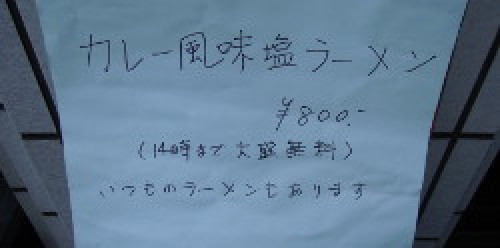 カレー風味塩ラーメン
¥800.-
(14時まで大盛無料)
いつものラーメンもあります